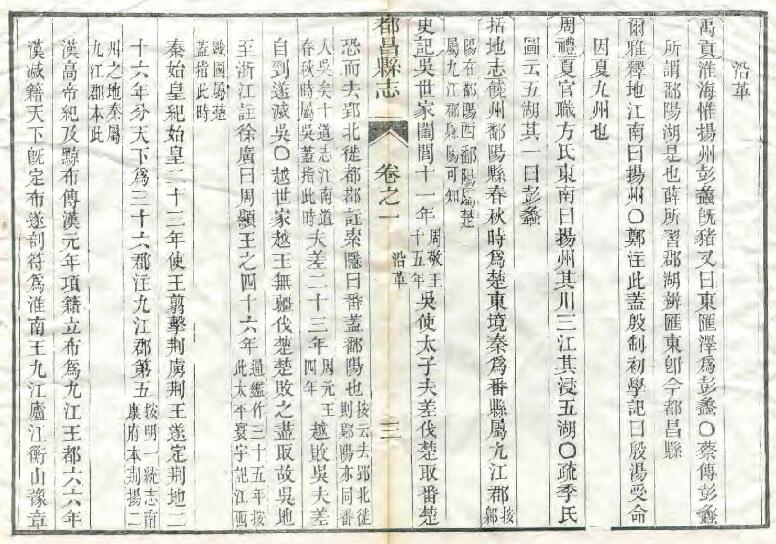 沿革
禹貢淮海惟揚州彭蠡既豬又曰東匯澤爲彭蠡〇蔡傳彭蠡
所謂鄱陽湖是也薛所習郡湖辨匯東卽今都昌縣
爾雅釋地江南曰揚州〇鄭注此蓋殷制初學記曰殷湯受命
因夏九州也
周禮夏官職方氏東南曰揚州其川三江其浸五湖〇疏季氏
圖云五湖其一曰彭蠡
括地志饒州鄱陽縣春秋時爲楚東境秦爲番縣屬九江郡按鄡
陽在鄱陽西鄱陽屬楚
屬九江郡鄡陽可知
史記吳世家闔閭十一年周敬王十五年吳使太子夫差伐楚取番楚
都昌縣志 卷之一 沿革 三
恐而去郢北徙都鄀註索隱曰番蓋鄱陽也按云去郢北徙則鄡陽亦同番
入吳矣十道志江南道春秋時屬吳蓋指此時夫差二十三年周元王四年越敗吳夫差
自剄遂滅吳〇越世家越王無彊伐楚楚敗之盡取故吳地
至浙江註徐廣曰周顯王之四十六年通鑑作三十五年按此太平寰宇記江西
毀國屬楚
蓋指此時
秦始皇紀始皇二十三年使王翦擊荆虜荆王遂定荆地二
十六年分天下爲三十六郡注九江郡第五按明一統志南康府本荆揚二
州之地秦屬
九江郡本此
漢高帝紀及黥布傳漢元年項籍立布爲九江王都六六年
漢滅籍天下旣定布遂剖符爲淮南王九江廬江衡山豫章